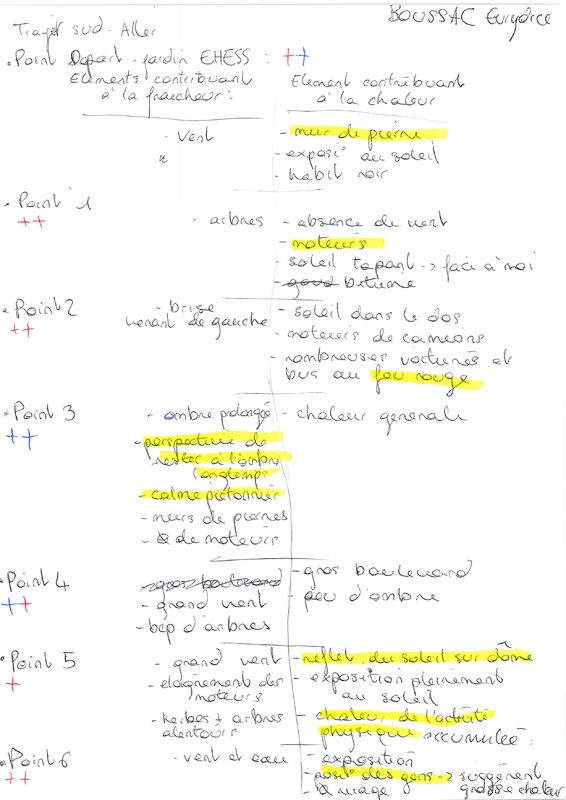 BOUSSAC Eurydice
Trajet sud - Aller
• Point Depart - jardin EHESS : ++
Elements contribuant
à la fraicheur :
Element contribuant
à la chaleur
- Vent
- mur de pierre
- exposi° au soleil
- habit noir
• Point 1
++
- arbres
- absence de vent
- moteurs
- soleil tapant → face à moi
- bitume
• Point 2
++
- brise
venant de gauche
- soleil dans le dos
- moteurs de camions
- nombreuses voitures et
bus au feu rouge
• Point 3
++
- ombre prolongée
- perspective de
rester à l'ombre
longtemps
- calme piétonnier
- murs de pierres
- de moteurs
- chaleur generale
• Point 4
++
- gros boulevard
- grand vent
- bcp d'arbres
- gros boulevard
- peu d'ombre
• Point 5
+
- grand vent
- eloignement des
moteurs
- herbes + arbres
alentours
- reflet du soleil sur dôme
- exposition pleinement
au soleil
- chaleur de l'activité
physique accumulée
• Point 6
++
- vent et eau
- exposition
- posit° des gens → suggérent
grosse chaleur
- nuage